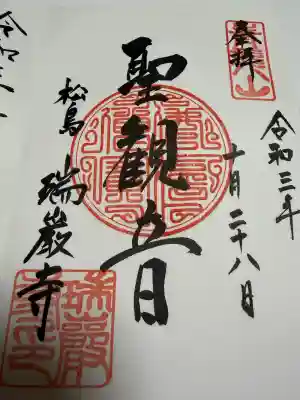 奉拝
令和三年
十月二十八日
聖観音
松島
瑞巌寺
瑞巌
令和三